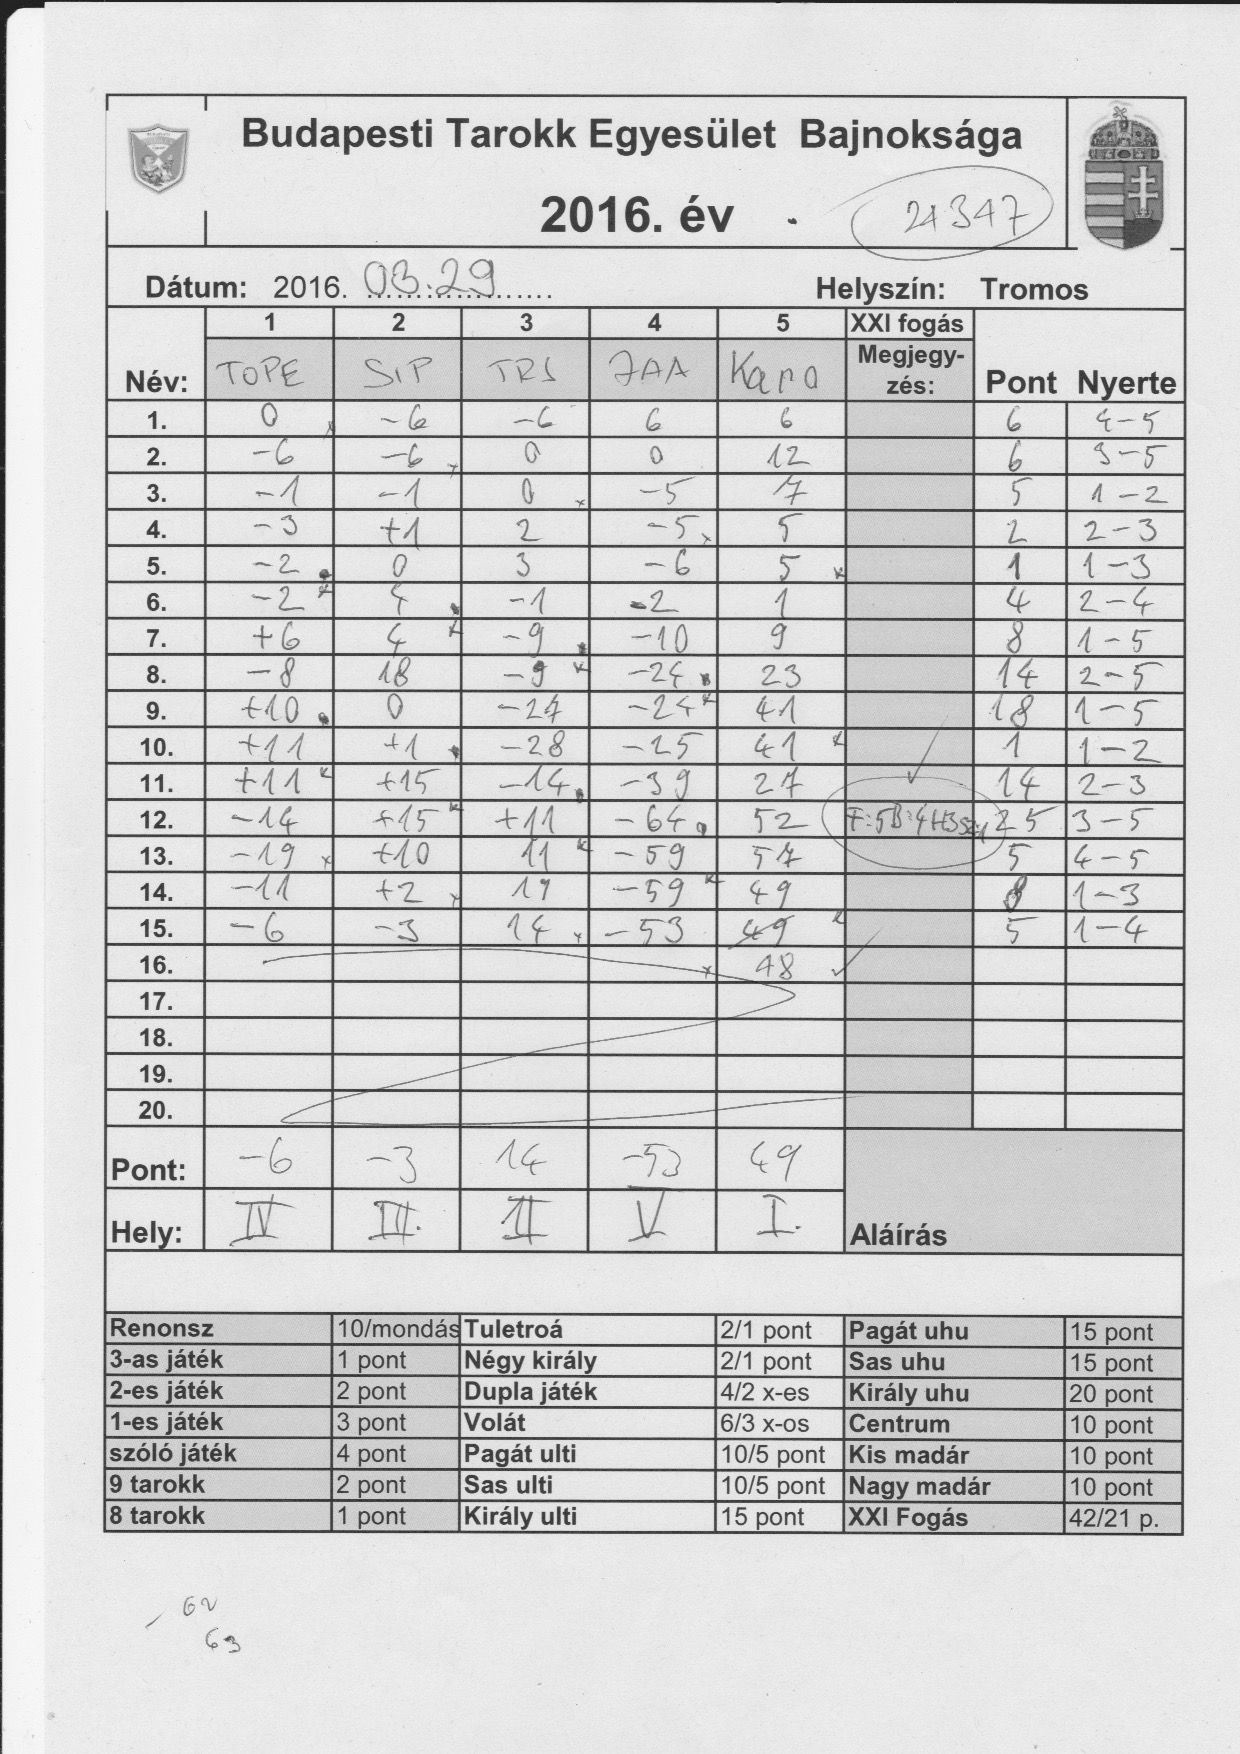 Budapesti Tarokk Egyesület Bajnoksága
2016. év
21347
Dátum: 2016. 03.29 Helyszín: Tromos
1 2 3 4 5 XXI fogás
Név: TOPE SIP TRS JAA Kara Megjegy- Pont Nyerte
zés:
1. 0 -6 -6 6 6 6 4-5
2. -6 -6 0 0 12 6 3-5
3. -1 -1 0 -5 7 5 1-2
4. -3 +1 2 -5 5 2 2-3
5. -2 0 3 -6 5 1 1-3
6. -2 4 -1 -2 1 4 2-4
7. +6 4 -9 -10 9 8 1-5
8. -8 18 -9 -24 23 14 2-5
9. +10 0 -27 -24 41 18 1-5
10. +11 +1 -28 -25 41 1 1-2
11. +11 +15 -14 -39 27 14 2-3
12. -14 +15 +11 -64 52 F:5B:4H3Sz:1 25 3-5
13. -19 +10 11 -59 57 5 4-5
14. -11 +2 19 -59 49 8 1-3
15. -6 -3 14 -53 49 5 1-4
16. 48
17.
18.
19.
20.
Pont: -6 -3 14 -53 49
Hely: IV III. II V I. Aláírás
Renonsz 10/mondás Tuletroá 2/1 pont Pagát uhu 15 pont
3-as játék 1 pont Négy király 2/1 pont Sas uhu 15 pont
2-es játék 2 pont Dupla játék 4/2 x-es Király uhu 20 pont
1-es játék 3 pont Volát 6/3 x-os Centrum 10 pont
szóló játék 4 pont Pagát ulti 10/5 pont Kis madár 10 pont
9 tarokk 2 pont Sas ulti 10/5 pont Nagy madár 10 pont
8 tarokk 1 pont Király ulti 15 pont XXI Fogás 42/21 p.
63